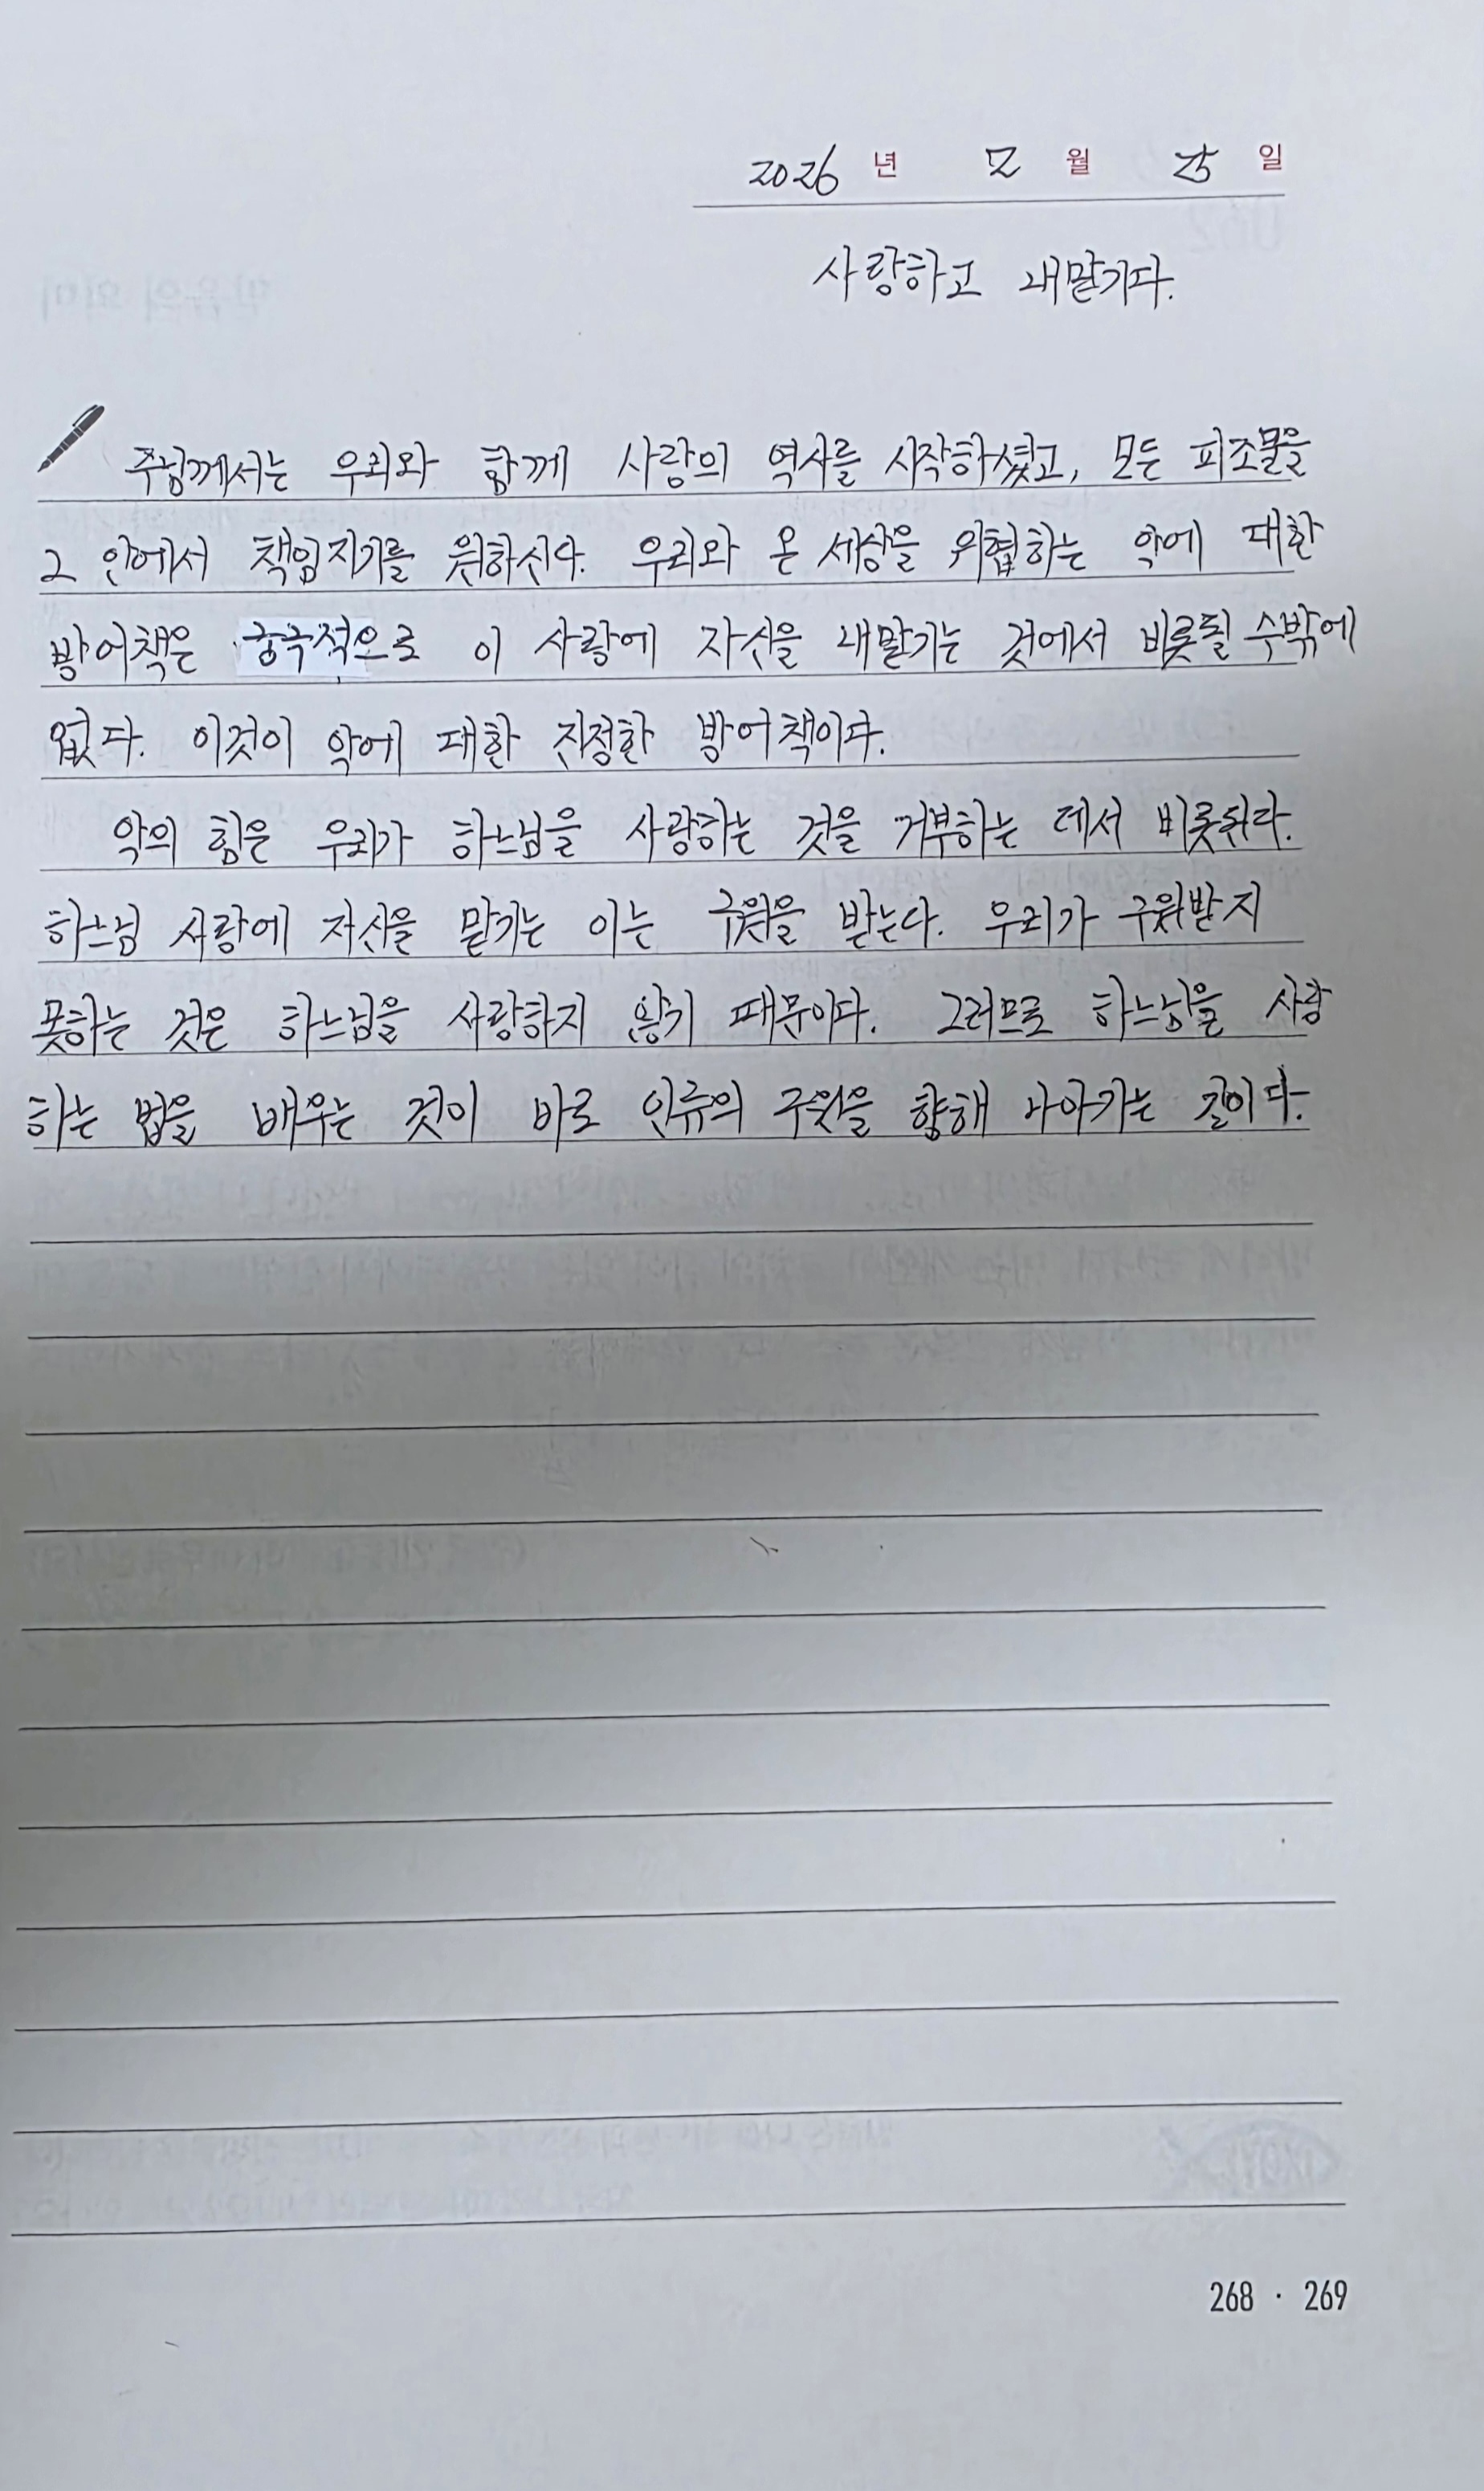 2026 년 2 월 25 일
사랑하고 내맡기다.
주님께서는 우리와 함께 사랑의 역사를 시작하셨고, 모든 피조물을
그 안에서 책임지기를 원하신다. 우리와 온 세상을 위협하는 악에 대한
방어책은 궁극적으로 이 사랑에 자신을 내맡기는 것에서 비롯될 수밖에
없다. 이것이 악에 대한 진정한 방어책이다.
악의 힘은 우리가 하느님을 사랑하는 것을 거부하는 데서 비롯된다.
하느님 사랑에 자신을 맡기는 이는 구원을 받는다. 우리가 구원받지
못하는 것은 하느님을 사랑하지 않기 때문이다. 그러므로 하느님을 사랑
하는 법을 배우는 것이 바로 인류의 구원을 향해 나아가는 길이다.
268 · 269